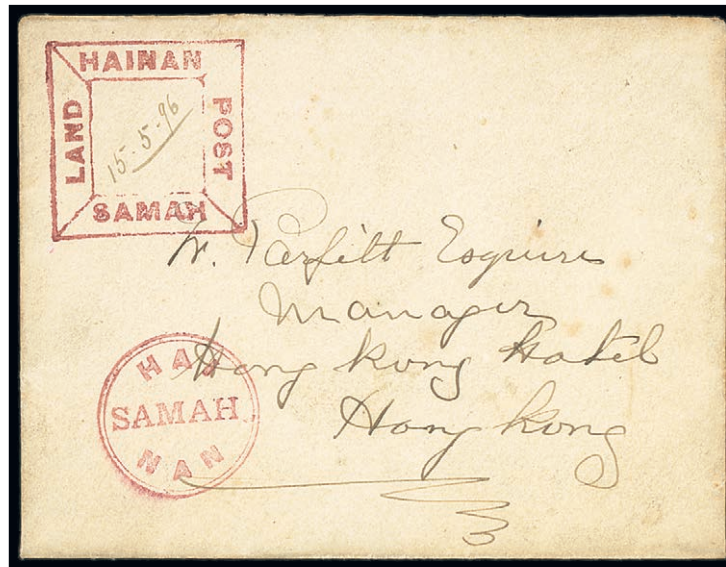 HAINAN
LAND
15-5-96
POST
SAMAH
W. Parfitt Esquire
Manager
Hong Kong Hotel
Hong Kong
HAI
SAMAH
NAN